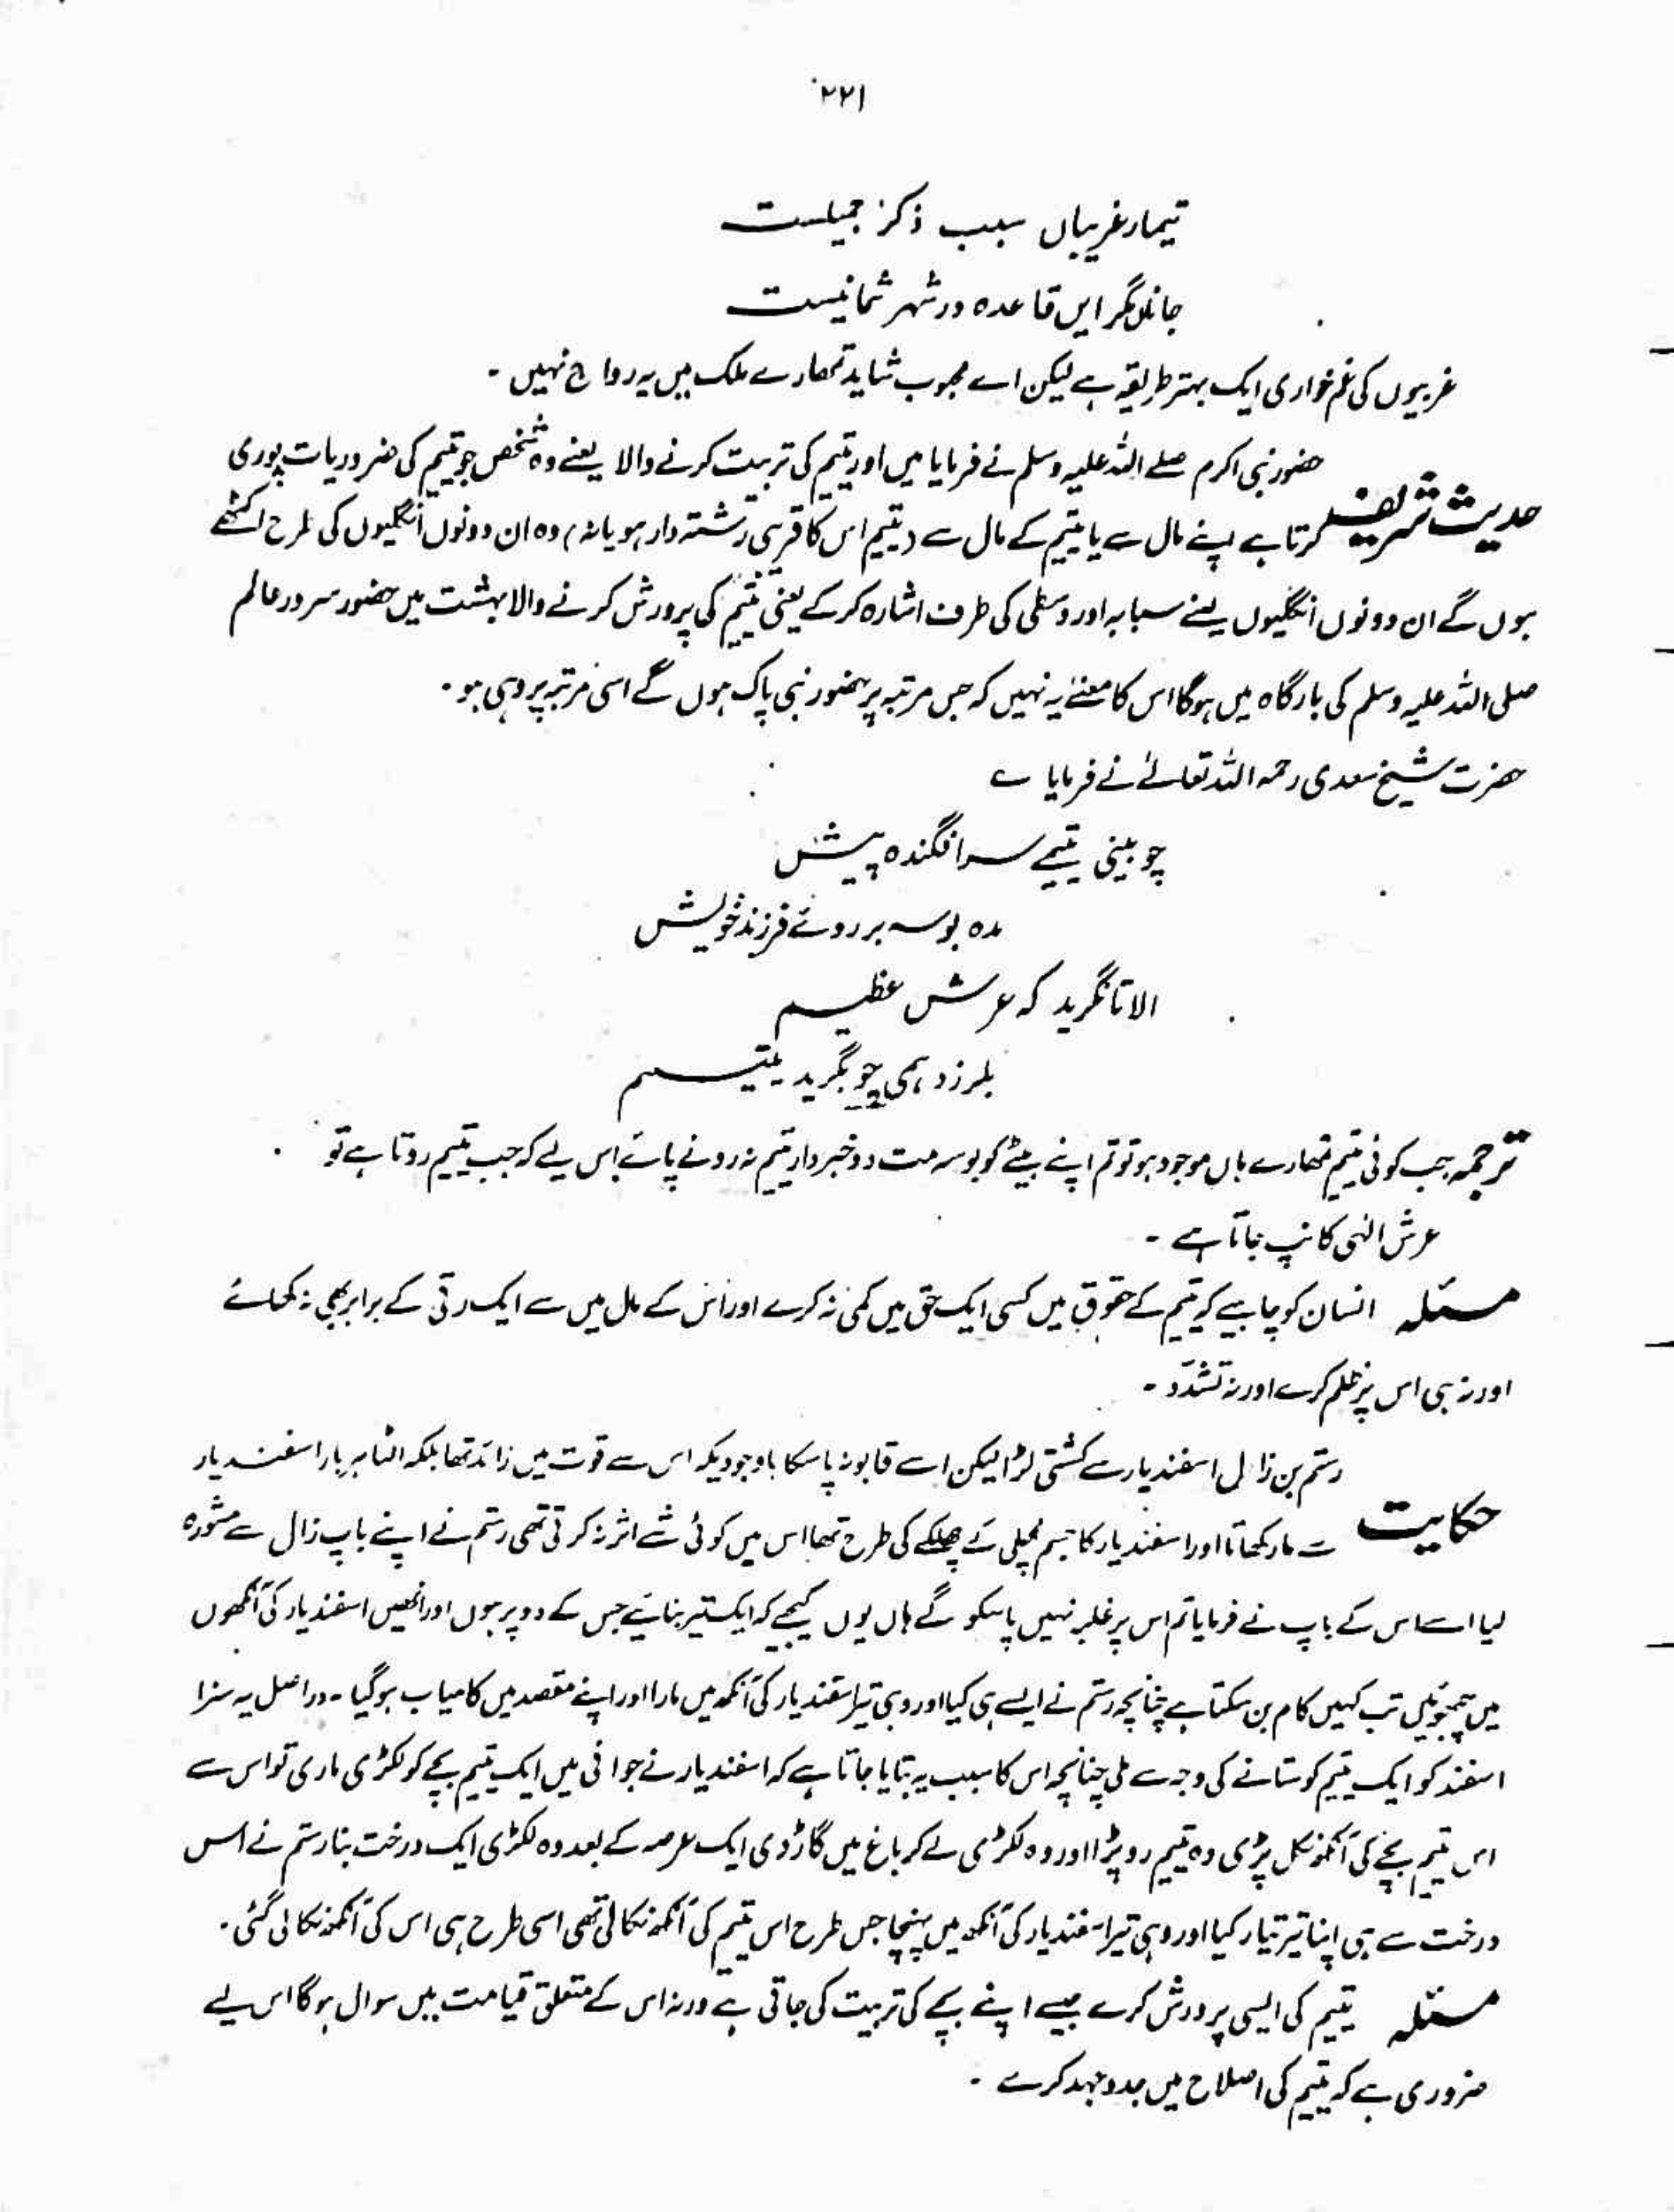 ۲۲۱
تیمار غریباں سبب ذکر جمیلست
جاناں مگر ایں قاعدہ در شہر شما نیست
غریبوں کی غم خواری ایک بہتر طریقہ ہے لیکن اے محبوب شاید تمھارے ملک میں یہ رواج نہیں ۔
حضور نبی اکرم صلے اللہ علیہ وسلم نے فرمایا میں اور یتیم کی تربیت کرنے والا یعنے وہ شخص جو یتیم کی ضروریات پوری
حدیث شریف کرتا ہے اپنے مال سے یا یتیم کے مال سے (یتیم اس کا قریبی رشتہ دار ہو یا نہ) وہ ان دونوں انگلیوں کی طرح اکٹھے
ہوں گے ان دونوں انگلیوں یعنے سبابہ اور وسطٰی کی طرف اشارہ کر کے یعنی یتیم کی پرورش کرنے والا بہشت میں حضور سرور عالم
صلی اللہ علیہ وسلم کی بارگاہ میں ہوگا اس کا معنےٰ یہ نہیں کہ جس مرتبہ پر حضور نبی پاک ہوں گے اسی مرتبہ پر وہی ہو ۔
حضرت شیخ سعدی رحمہ اللہ تعالےٰ نے فرمایا ے
چو بینی یتیمے سر افگندہ پیش
مدہ بوسہ بر روئے فرزند خویش
الا تا نگرید کہ عرش عظیم
بلرزد ہمی چو بگرید یتیم
ترجمہ جب کوئی یتیم تمھارے ہاں موجود ہو تو تم اپنے بیٹے کو بوسہ مت دو خبردار یتیم نہ رونے پائے اس لیے کہ جب یتیم روتا ہے تو
عرش الٰہی کانپ جاتا ہے ۔
مسئلہ انسان کو چاہیے کہ یتیم کے حقوق میں کسی ایک حق میں کمی نہ کرے اور اس کے مال میں سے ایک رتی کے برابر بھی نہ کھائے
اور نہ ہی اس پر ظلم کرے اور نہ تشدّد ۔
رستم بن زال اسفندیار سے کشتی لڑا لیکن اسے قابو نہ پا سکا باوجودیکہ اس سے قوت میں زائد تھا بلکہ الٹا ہر بار اسفندیار
حکایت سے مار کھاتا اور اسفندیار کا جسم مچھلی کے چھلکے کی طرح تھا اس میں کوئی شے اثر نہ کرتی تھی رستم نے اپنے باپ زال سے مشورہ
لیا اسے اس کے باپ نے فرمایا تم اس پر غلبہ نہیں پا سکو گے ہاں یوں کیجیے کہ ایک تیر بنائیے جس کے دو پر ہوں اور انھیں اسفندیار کی آنکھوں
میں چبھوئیں تب کہیں کام بن سکتا ہے چنانچہ رستم نے ایسے ہی کیا اور وہی تیر اسفندیار کی آنکھ میں مارا اور اپنے مقصد میں کامیاب ہو گیا ۔ دراصل یہ سزا
اسفند کو ایک یتیم کو ستانے کی وجہ سے ملی چنانچہ اس کا سبب یہ بتایا جاتا ہے کہ اسفندیار نے جوانی میں ایک یتیم بچے کو لکڑی ماری تو اس سے
اس یتیم بچے کی آنکھ نکل پڑی وہ یتیم رو پڑا اور وہ لکڑی لے کر باغ میں گاڑ دی ایک عرصہ کے بعد وہ لکڑی ایک درخت بنا رستم نے اس
درخت سے ہی اپنا تیر تیار کیا اور وہی تیر اسفندیار کی آنکھ میں پہنچا جس طرح اس یتیم کی آنکھ نکالی تھی اسی طرح ہی اس کی آنکھ نکالی گئی ۔
مسئلہ یتیم کی ایسی پرورش کرے جیسے اپنے بچے کی تربیت کی جاتی ہے ورنہ اس کے متعلق قیامت میں سوال ہوگا اس لیے
ضروری ہے کہ یتیم کی اصلاح میں جدوجہد کرے ۔